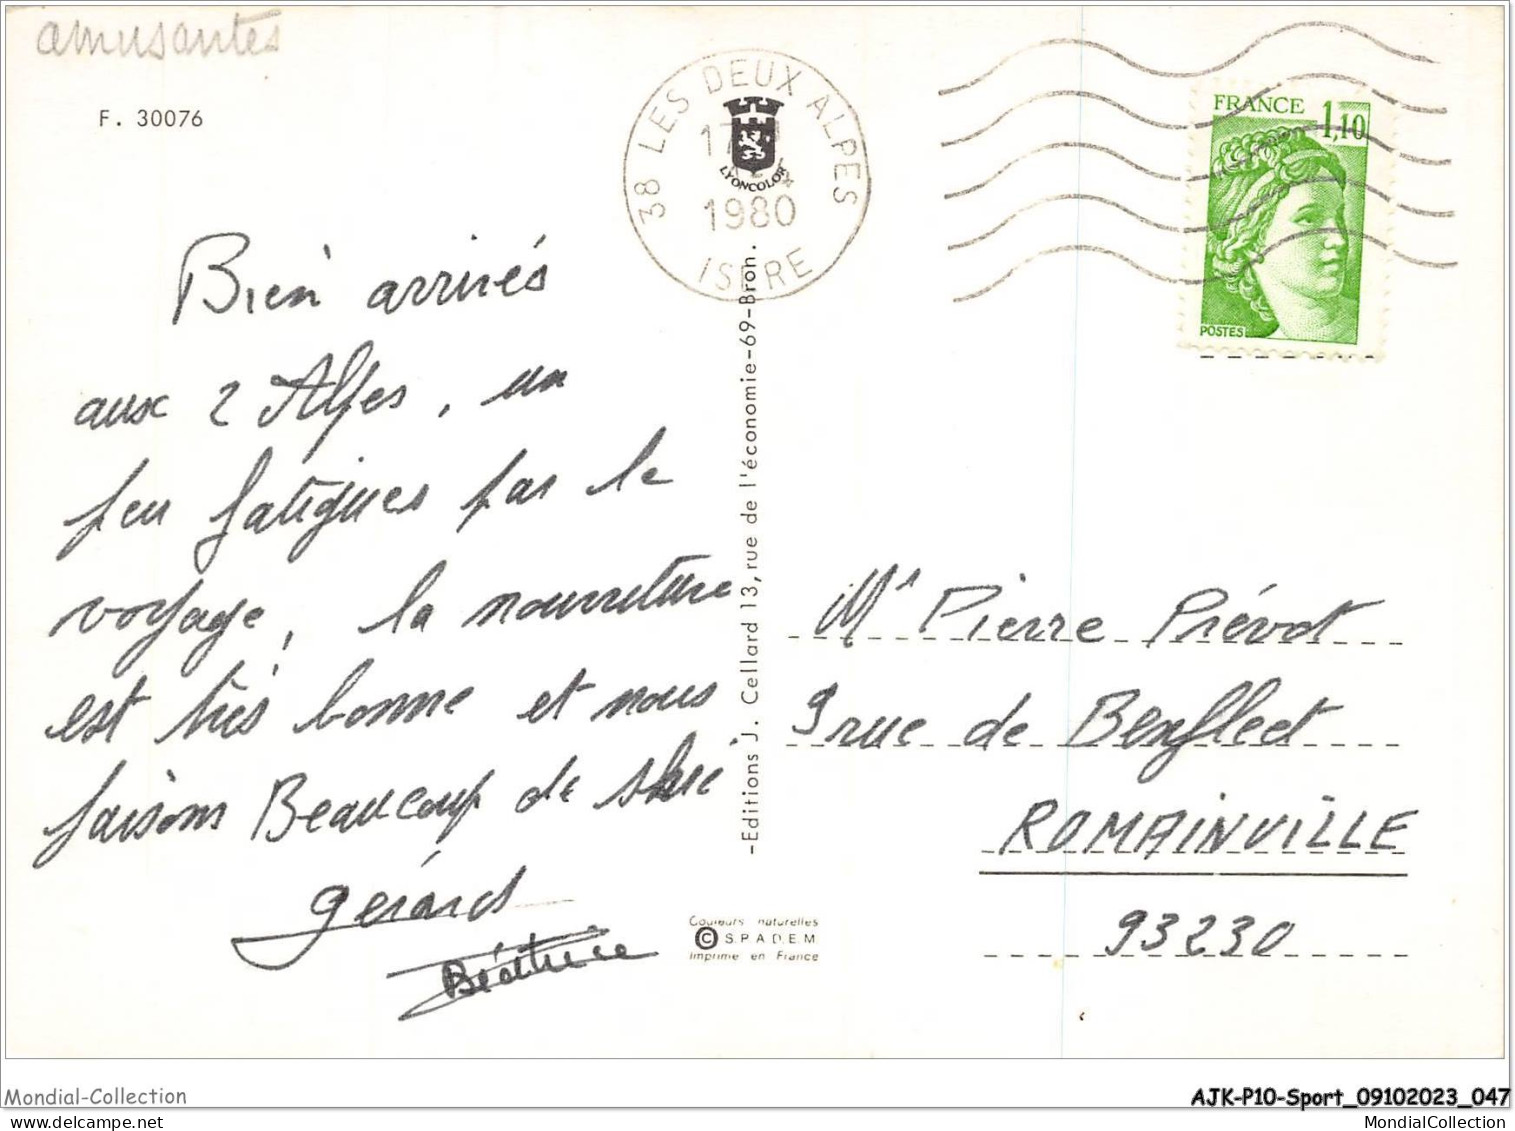 amusantes
F. 30076
38 LES DEUX ALPES
1980
ISERE
LYONCOLOR
FRANCE 1,10
POSTES
Bien arrivés
aux 2 Alpes, un
peu fatigues par le
voyage, la nourriture
est très bonne et nous
faisons Beaucoup de
gérard
Béatrice
-Editions J. Cellard 13, rue de l'économie-69-Bron.
Couleurs naturelles
© S.P.A.D.E.M
Imprimé en France
Mr Pierre Prévot
9 rue de Benfleet
ROMAINVILLE
93230
Mondial-Collection
AJK-P10-Sport_09102023_047
MondialCollection